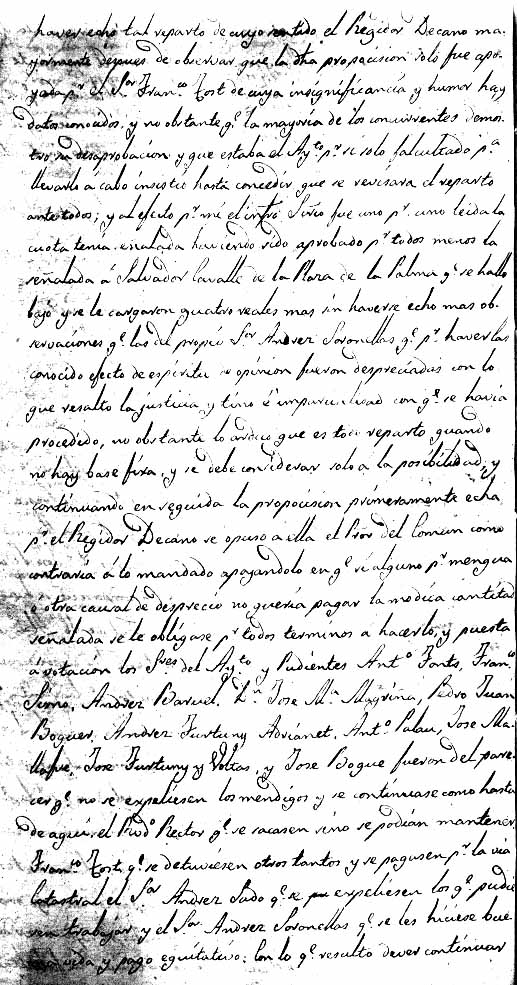 haver echo tal reparto de cuyo sentido el Regidor Decano ma-
yormente despues de observar que la dha proposicion solo fue apo-
yada pr. el Sor. Franco. Tost de cuya insignificancia y humor hay
datos conocidos, y no obstante qe. la mayoria de los concurrentes demos-
tro su desaprobacion y que estaba el Aytto. pr. si solo facultado pa.
llevarlo á cabo insistió hasta conceder que se revisara el reparto
ante todos; y al efecto pr. mi el infro. Sriño fue uno pr. uno leida la
cuota tenia señalada haviendo sido aprobado pr. todos menos la
señalada á Salvador Cavallé de la Plaza de la Palma qe. se halló
bajo y se le cargaron quatro reales mas sin haverse echo mas ob-
servaciones qe. las del propio Sor. Andrez Soronellas qe. pr. haverlas
conocido efecto de espiritu de opinion fueron despreciadas con lo
que resaltó la justicia y tino é imparcialidad con qe. se havia
procedido, no obstante lo arduo que es todo reparto quando
no hay base fixa, y se debe considerar solo a la posibilidad, y
continuando en seguida la proposicion primeramente echa
pr. el Regidor Decano se opuso a ella el Pror. del Comun como
contraria á lo mandado apoyandolo en qe. si alguno pr. mengua
ó otra causal de desprecio no queria pagar la modica cantidad
señalada se le obligase pr. todos terminos a hacerlo, y puesta
á votación los Sres. del Aytto. y Pudientes Anto. Fonts, Franco.
Simo, Andrez Baruel, Dn. Jose Ma. Magriña, Pedro Juan
Boquer, Andrez Furtuny Adrianet, Anto. Palau, Jose Ma-
llafre, Jose Furtuny y Voltas, y Jose Bogue fueron del pare-
cer qe. no se expeliesen los mendigos y se continuase como hasta
de aqui, el Rvdo. Rector qe. se sacasen sino se podian mantener,
Franco. Tost qe. se detuviesen otros tantos y se pagasen pr. la via
Catastral el Sor. Andrez Sado qe. se expeliesen los qe. pudie-
ren trabajar y el Sor. Andrez Soronellas qe. se les hiciese bue-
na vida y pago equitativo: Con lo qe. resultó dever continuar